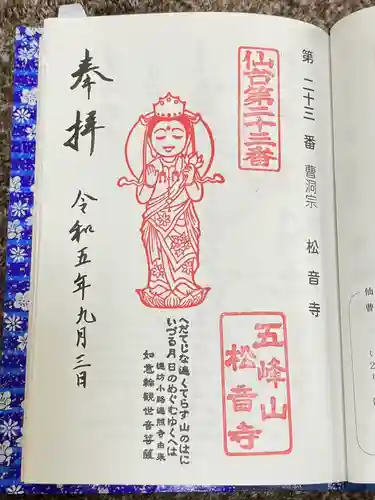 第二十三番 曹洞宗 松音寺
仙台第二十三番
五峰山
松音寺
へだてじな遍くてらす山のはに
いづる月日のめぐむゆくへは
遠坊小路遍照寺由来
如意輪観世音菩薩
奉拝
令和五年九月三日
仙
曹